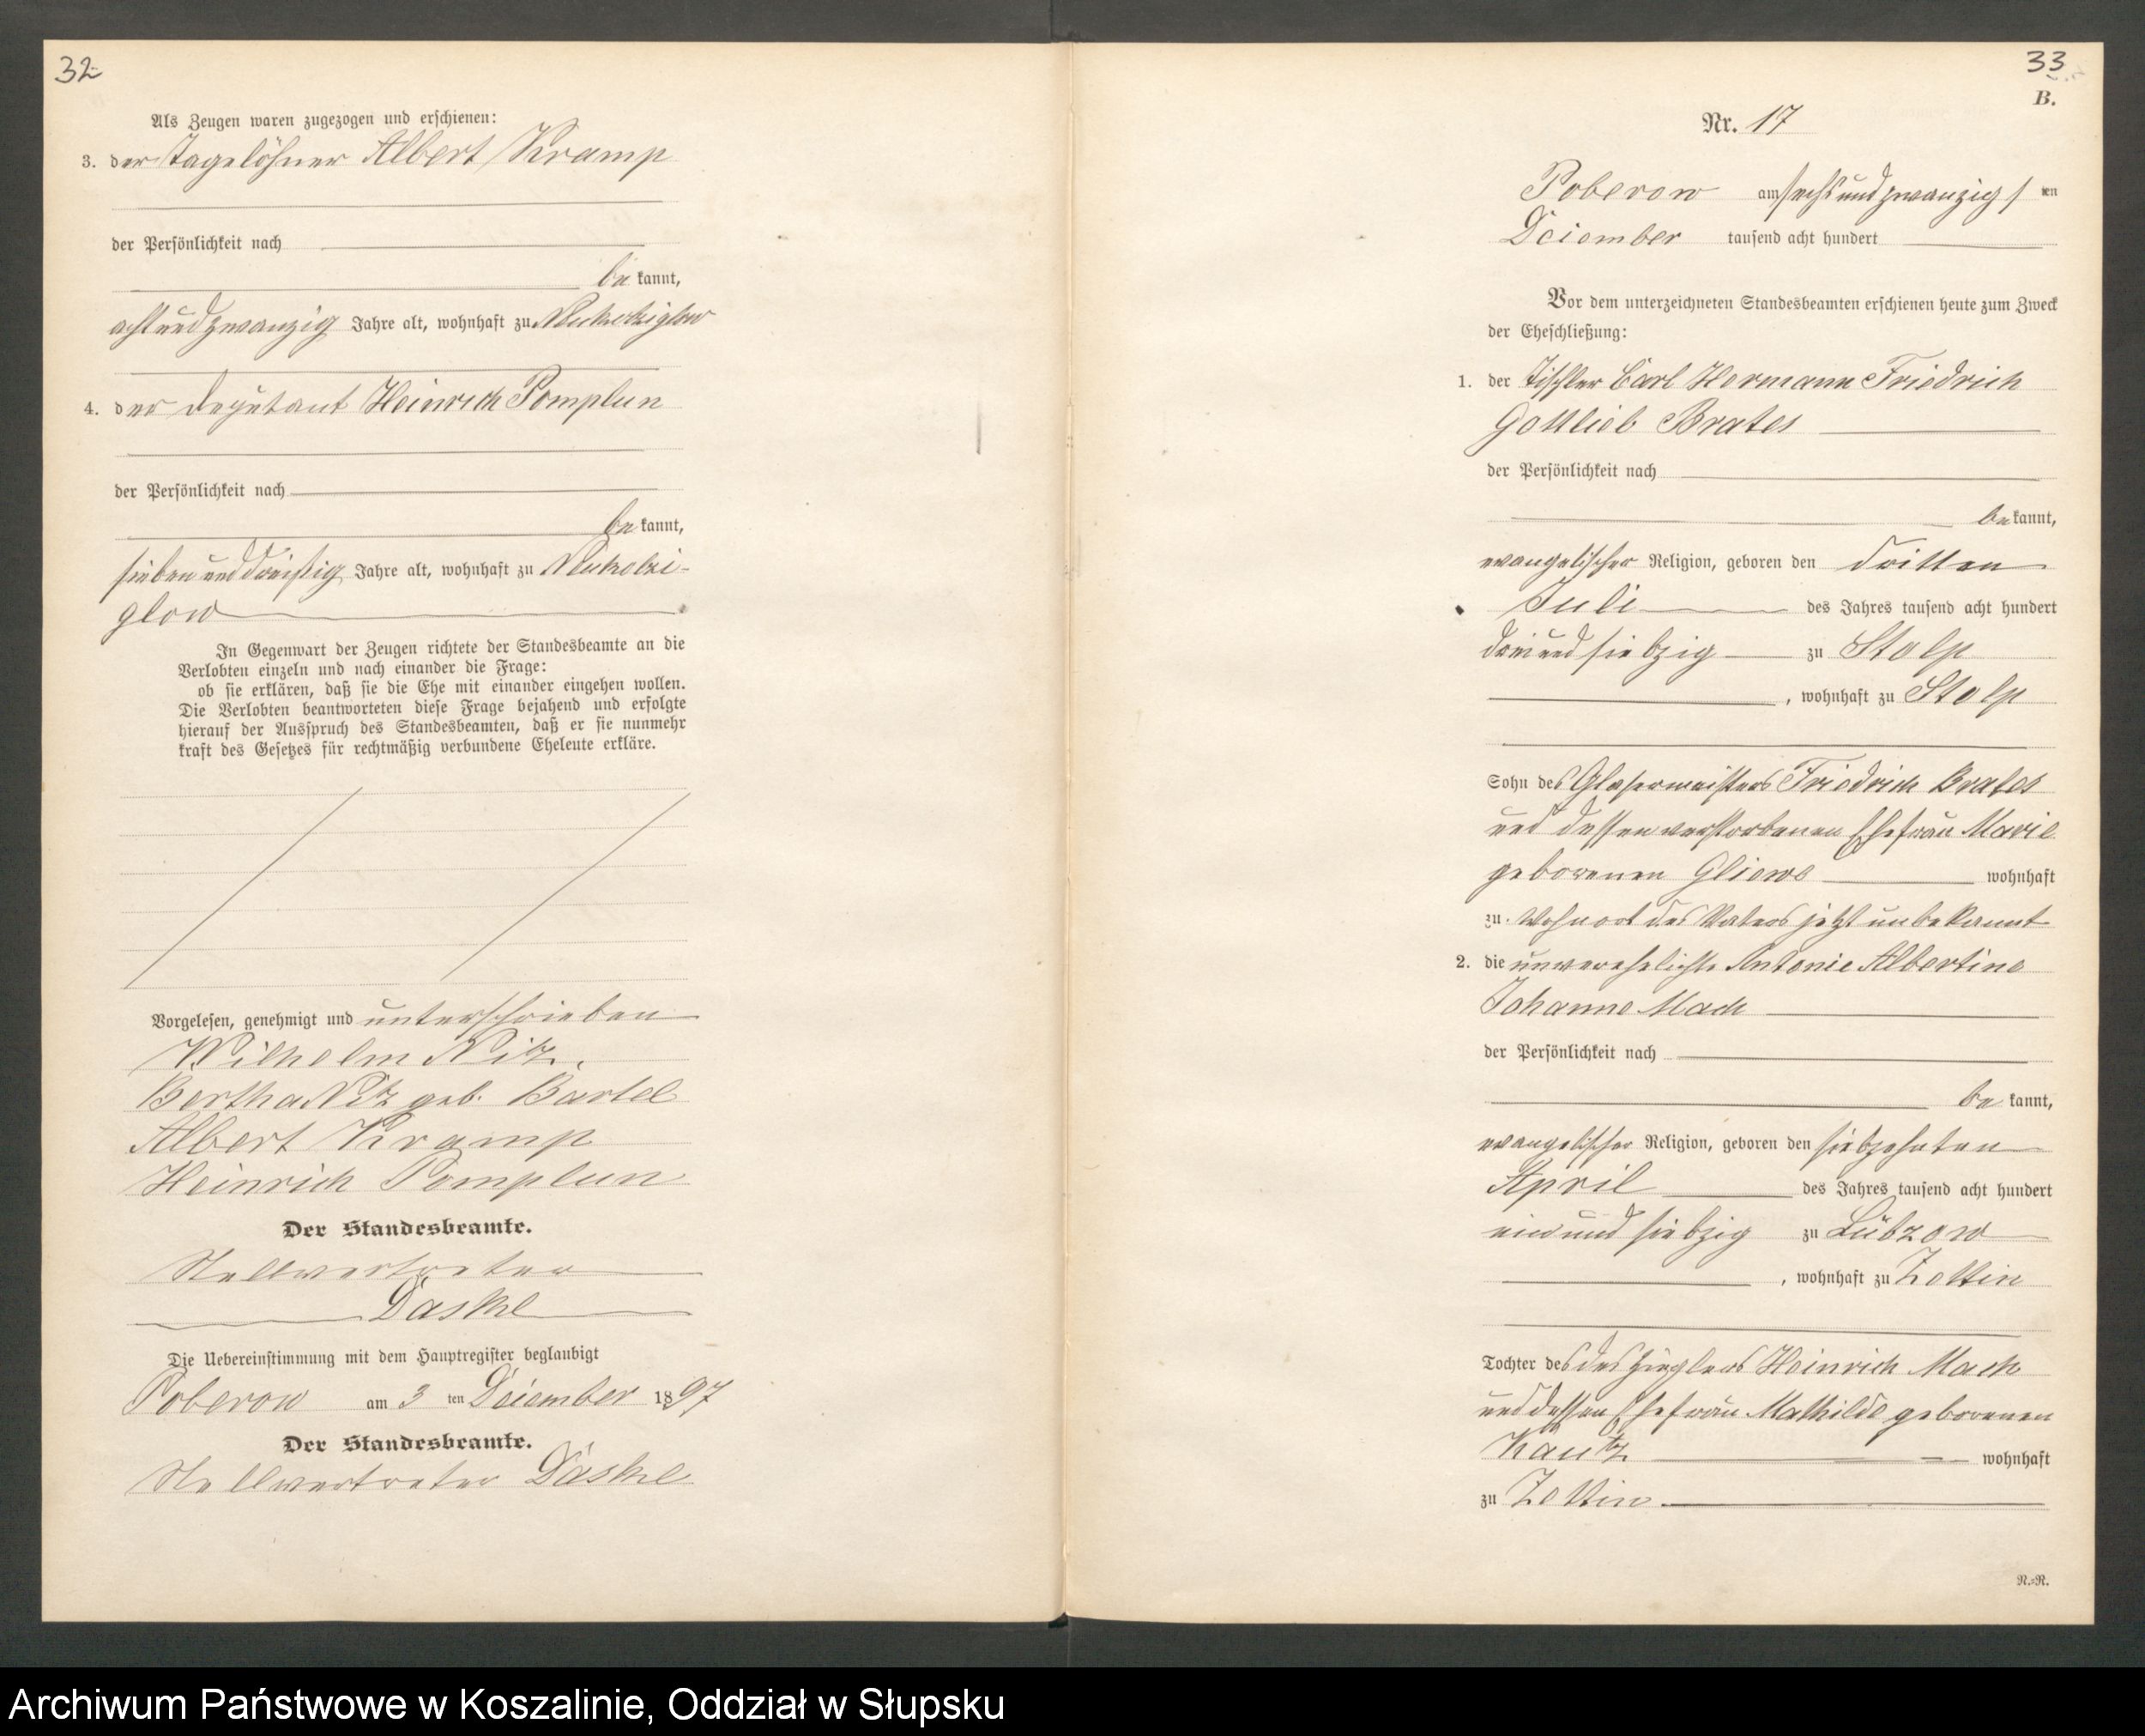 32
Als Zeugen waren zugezogen und erschienen:
3. der Tagelöhner Albert Kramp
der Persönlichkeit nach
be kannt,
achtundzwanzig Jahre alt, wohnhaft zu Neukolziglow
4. der Deputant Heinrich Pomplun
der Persönlichkeit nach
be kannt,
siebenunddreißig Jahre alt, wohnhaft zu Neukolzi-
glow
In Gegenwart der Zeugen richtete der Standesbeamte an die
Verlobten einzeln und nach einander die Frage:
ob sie erklären, daß sie die Ehe mit einander eingehen wollen.
Die Verlobten beantworteten diese Frage bejahend und erfolgte
hierauf der Ausspruch des Standesbeamten, daß er sie nunmehr
kraft des Gesetzes für rechtmäßig verbundene Eheleute erkläre.
Vorgelesen, genehmigt und unterschrieben
Wilhelm Nitz.
Bertha Nitz geb. Bartel
Albert Kramp
Heinrich Pomplun
Der Standesbeamte.
Stellvertreter
Daske
Die Uebereinstimmung mit dem Hauptregister beglaubigt
Poberow am 3 ten Dezember 1897
Der Standesbeamte.
Stellvertreter Daske
33
B.
Nr. 17
Poberow am sechsundzwanzig ten
Dezember tausend acht hundert
Vor dem unterzeichneten Standesbeamten erschienen heute zum Zweck
der Eheschließung:
1. der Tischler Carl Hermann Friedrich
Gottlieb Brates
der Persönlichkeit nach
be kannt,
evangelischer Religion, geboren den dritten
Juli des Jahres tausend acht hundert
dreiundsiebzig zu Stolp
, wohnhaft zu Stolp
Sohn des Glasermeisters Friedrich Brates
und dessen verstorbenen Ehefrau Marie
geborenen wohnhaft
zu Wohnort des Vaters jetzt unbekannt
2. die unverehelichte Antonie Albertine
Johanne Mach
der Persönlichkeit nach
be kannt,
evangelischer Religion, geboren den siebzehnten
April des Jahres tausend acht hundert
einundsiebzig zu Lübzow
, wohnhaft zu Zettin
Tochter des des Zieglers Heinrich Mach
und dessen Ehefrau Mathilde geborenen
Kautz wohnhaft
zu Zettin
R.-R.
Archiwum Państwowe w Koszalinie, Oddział w Słupsku